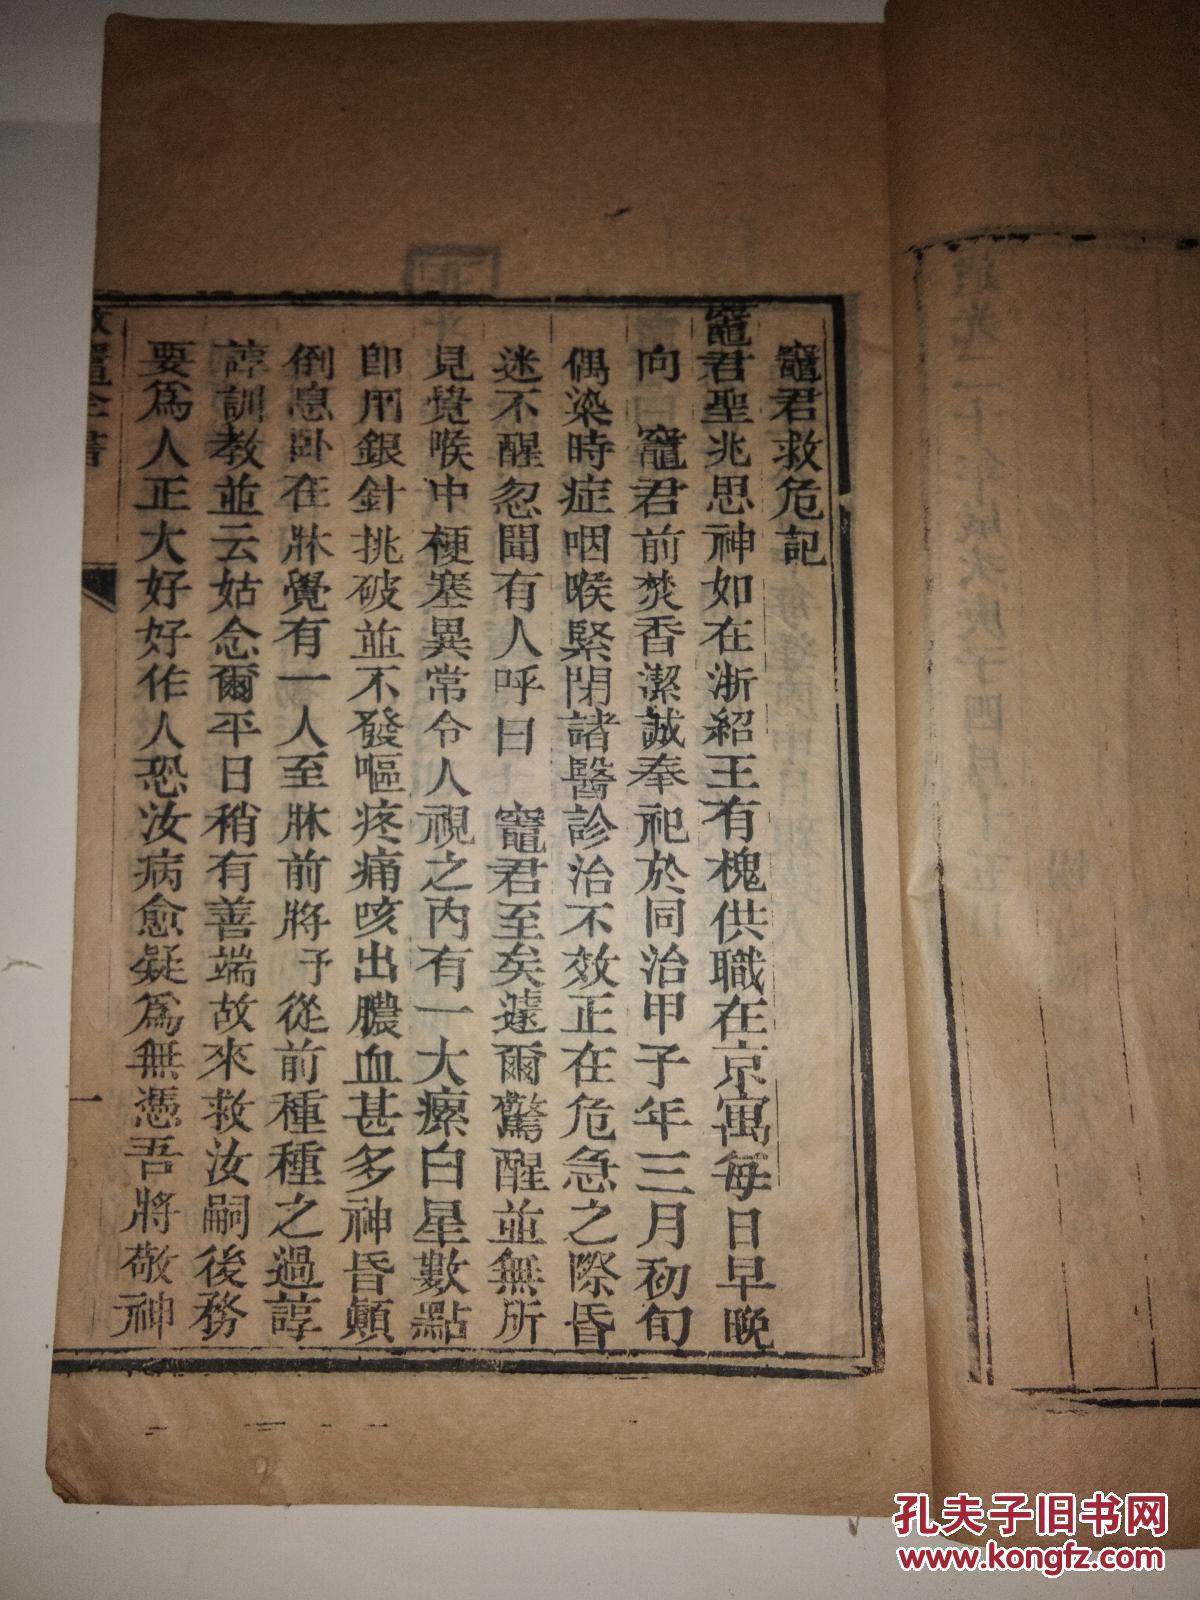 竈君救危記
竈君聖兆思神如在浙紹王有槐供職在京寓每日早晚
向　竈君前焚香潔誠奉祀於同治甲子年三月初旬
偶染時症咽喉緊閉諸醫診治不效正在危急之際昏
迷不醒忽聞有人呼曰　竈君至矣遽爾驚醒並無所
見覺喉中梗塞異常令人視之內有一大瘰白星數點
卽用銀針挑破並不發嘔疼痛咳出膿血甚多神昏顛
倒息臥在牀覺有一人至牀前將予從前種種之過諄
諄訓教並云姑念爾平日稍有善端故來救汝嗣後務
要爲人正大好好作人恐汝病愈疑爲無憑吾將敬神
敬竈全書
一
孔夫子旧书网
www.kongfz.com